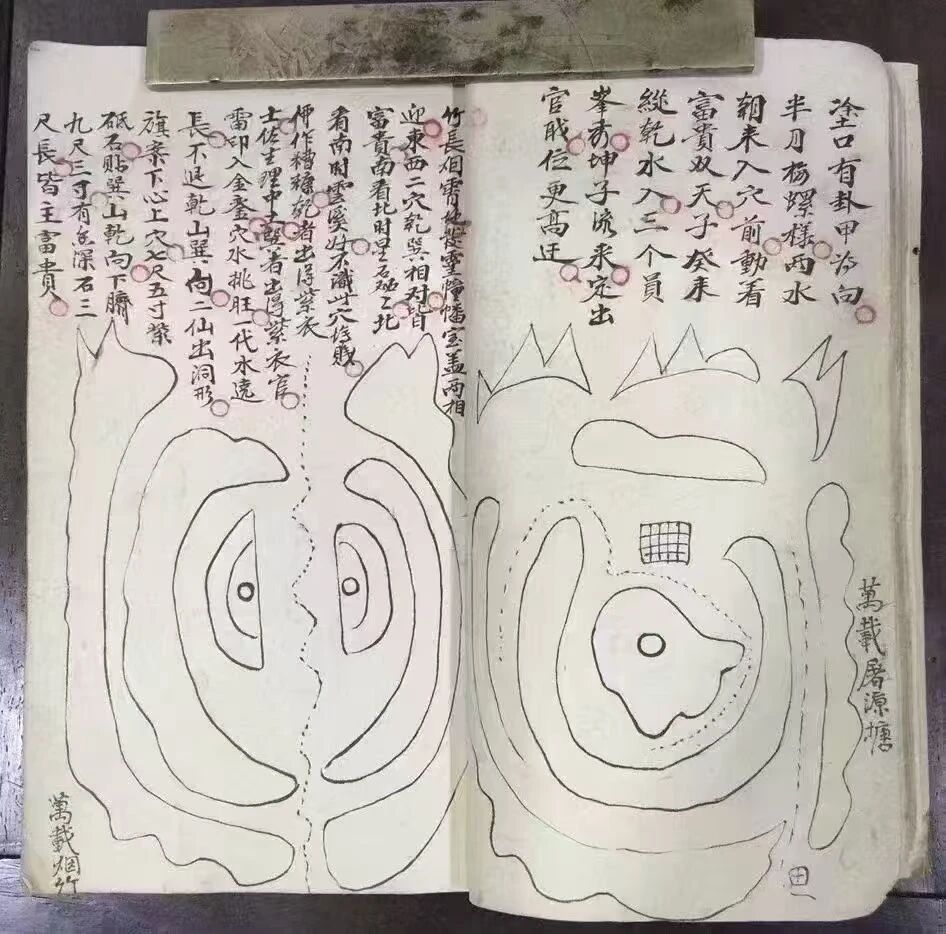 塗口有卦甲為向
半月楊螺樣兩水
朝来入穴前動着
富貴双天子癸来
縱乾水入三个員
峯秀坤子派来定出
官戝位更高迁
萬載屠源塘
竹長烟霄地發靈幢幡宝盖兩相
迎東西二穴乾巽相对皆
富貴南看北时星石北
看南时雲溪好不識此穴
糠乾者出得紫衣
土佐王理中巽者出得紫衣官
雷印入金釜穴水挑旺一代水遶
長不退乾山巽向二仙出洞形
旗案下心上穴七尺五寸紫
砥石贴巽山乾向下臍
九尺三寸有魚深石三
尺長皆主富貴
萬載烟竹